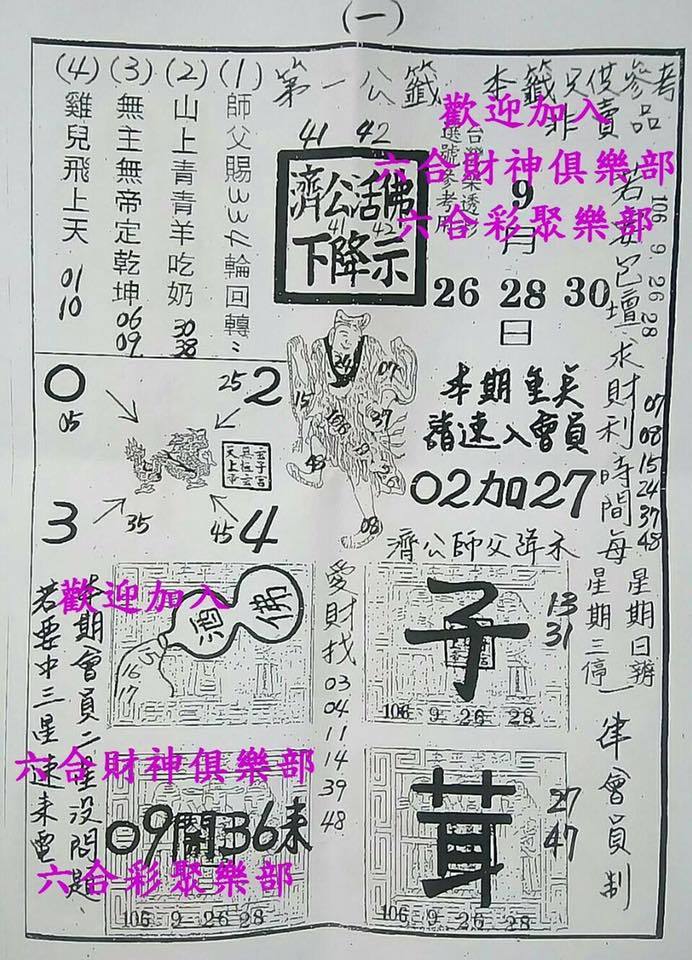 (一)
第一公籤
本籤只供參考
非賣品
歡迎加入
六合財神俱樂部
六合彩聚樂部
(1) 師父賜334輪回轉
(2) 山上青青羊吃奶 30 38
(3) 無主無帝定乾坤 06 09
(4) 雞兒飛上天 01 10
41 42
濟公活佛
41 42
下降示
選號參考用
9月
26 28 30
日
106 9. 26 28
若要包壇求財利時間每
星期日辦
星期三停
律會員制
07
08
15
24
37
48
本期重美
請速入會員
02加27
濟公師父降示
0
05
25
2
3
35
45
4
天上
24
07
15
37
48
08
歡迎加入
本期會員二星沒問題
若要中三星速來電
酒
佛
16
17
愛財找
03
04
11
14
39
48
子
13
31
106 9 26 28
六合財神俱樂部
09鬧36來
六合彩聚樂部
106 9 26 28
茸
27
47
106 9 26 28